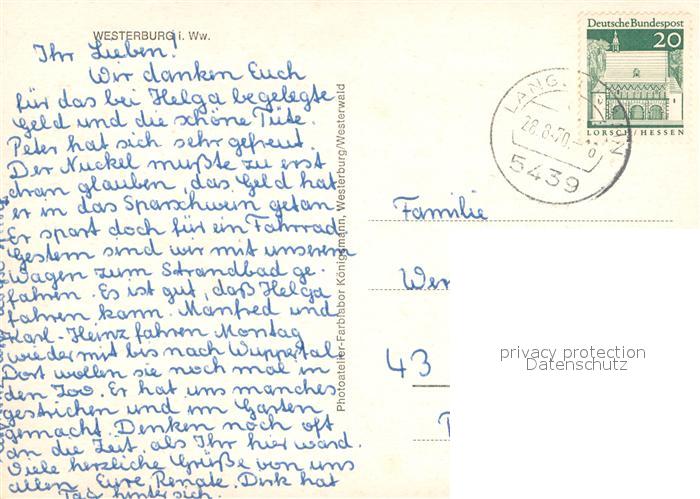 WESTERBURG i. Ww.
Ihr Lieben!
Wir danken Euch
für das bei Helga begelegte
Geld und die schöne Tüte.
Peter hat sich sehr gefreut.
Der Nuckel mußte zu erst
dran glauben, das Geld hat
er in das Sparschwein getan.
Er spart doch für ein Fahrrad.
Gestern sind wir mit unserem
Wagen zum Strandbad ge-
fahren. Es ist gut, daß Helga
fahren kann. Manfred und
Karl-Heinz fahren Montag
wieder mit bis nach Wuppertal.
Dort wollen sie noch mal in
den Zoo. Er hat uns manches
gestrichen und im Garten
gemacht. Denken noch oft
an die Zeit, als Ihr hier ward.
Viele herzliche Grüße von uns
allen Eure Renate. Dirk hat
Tag hinter sich.
Photoatelier-Farblabor Königsmann, Westerburg/Westerwald
Deutsche Bundespost
20
LORSCH/HESSEN
LANG
28.8.70
5439
Familie
Wer
43
privacy protection
Datenschutz